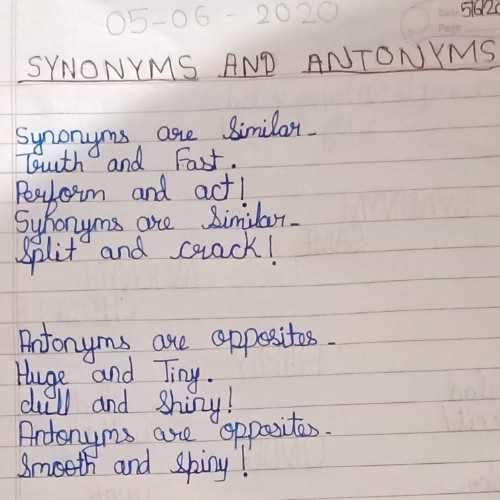 05-06-2020
5/6/20
SYNONYMS AND ANTONYMS
Synonyms are Similar-
Truth and Fast.
Perform and act!
Synonyms are Similar-
Split and crack!
Antonyms are opposites-
Huge and Tiny.
dull and Shiny!
Antonyms are opposites-
Smooth and spiny!